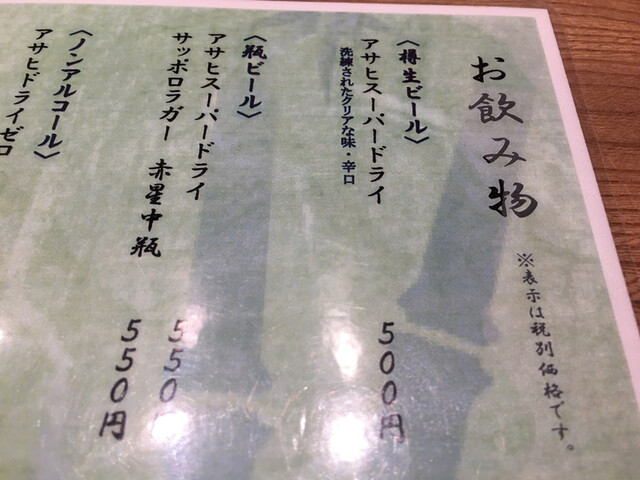 お飲み物
※表示は税別価格です。
〈樽生ビール〉
アサヒスーパードライ 500円
洗練されたクリアな味・辛口
〈瓶ビール〉
アサヒスーパードライ 550
サッポロラガー 赤星中瓶 550円
〈ノンアルコール〉
アサヒドライゼロ